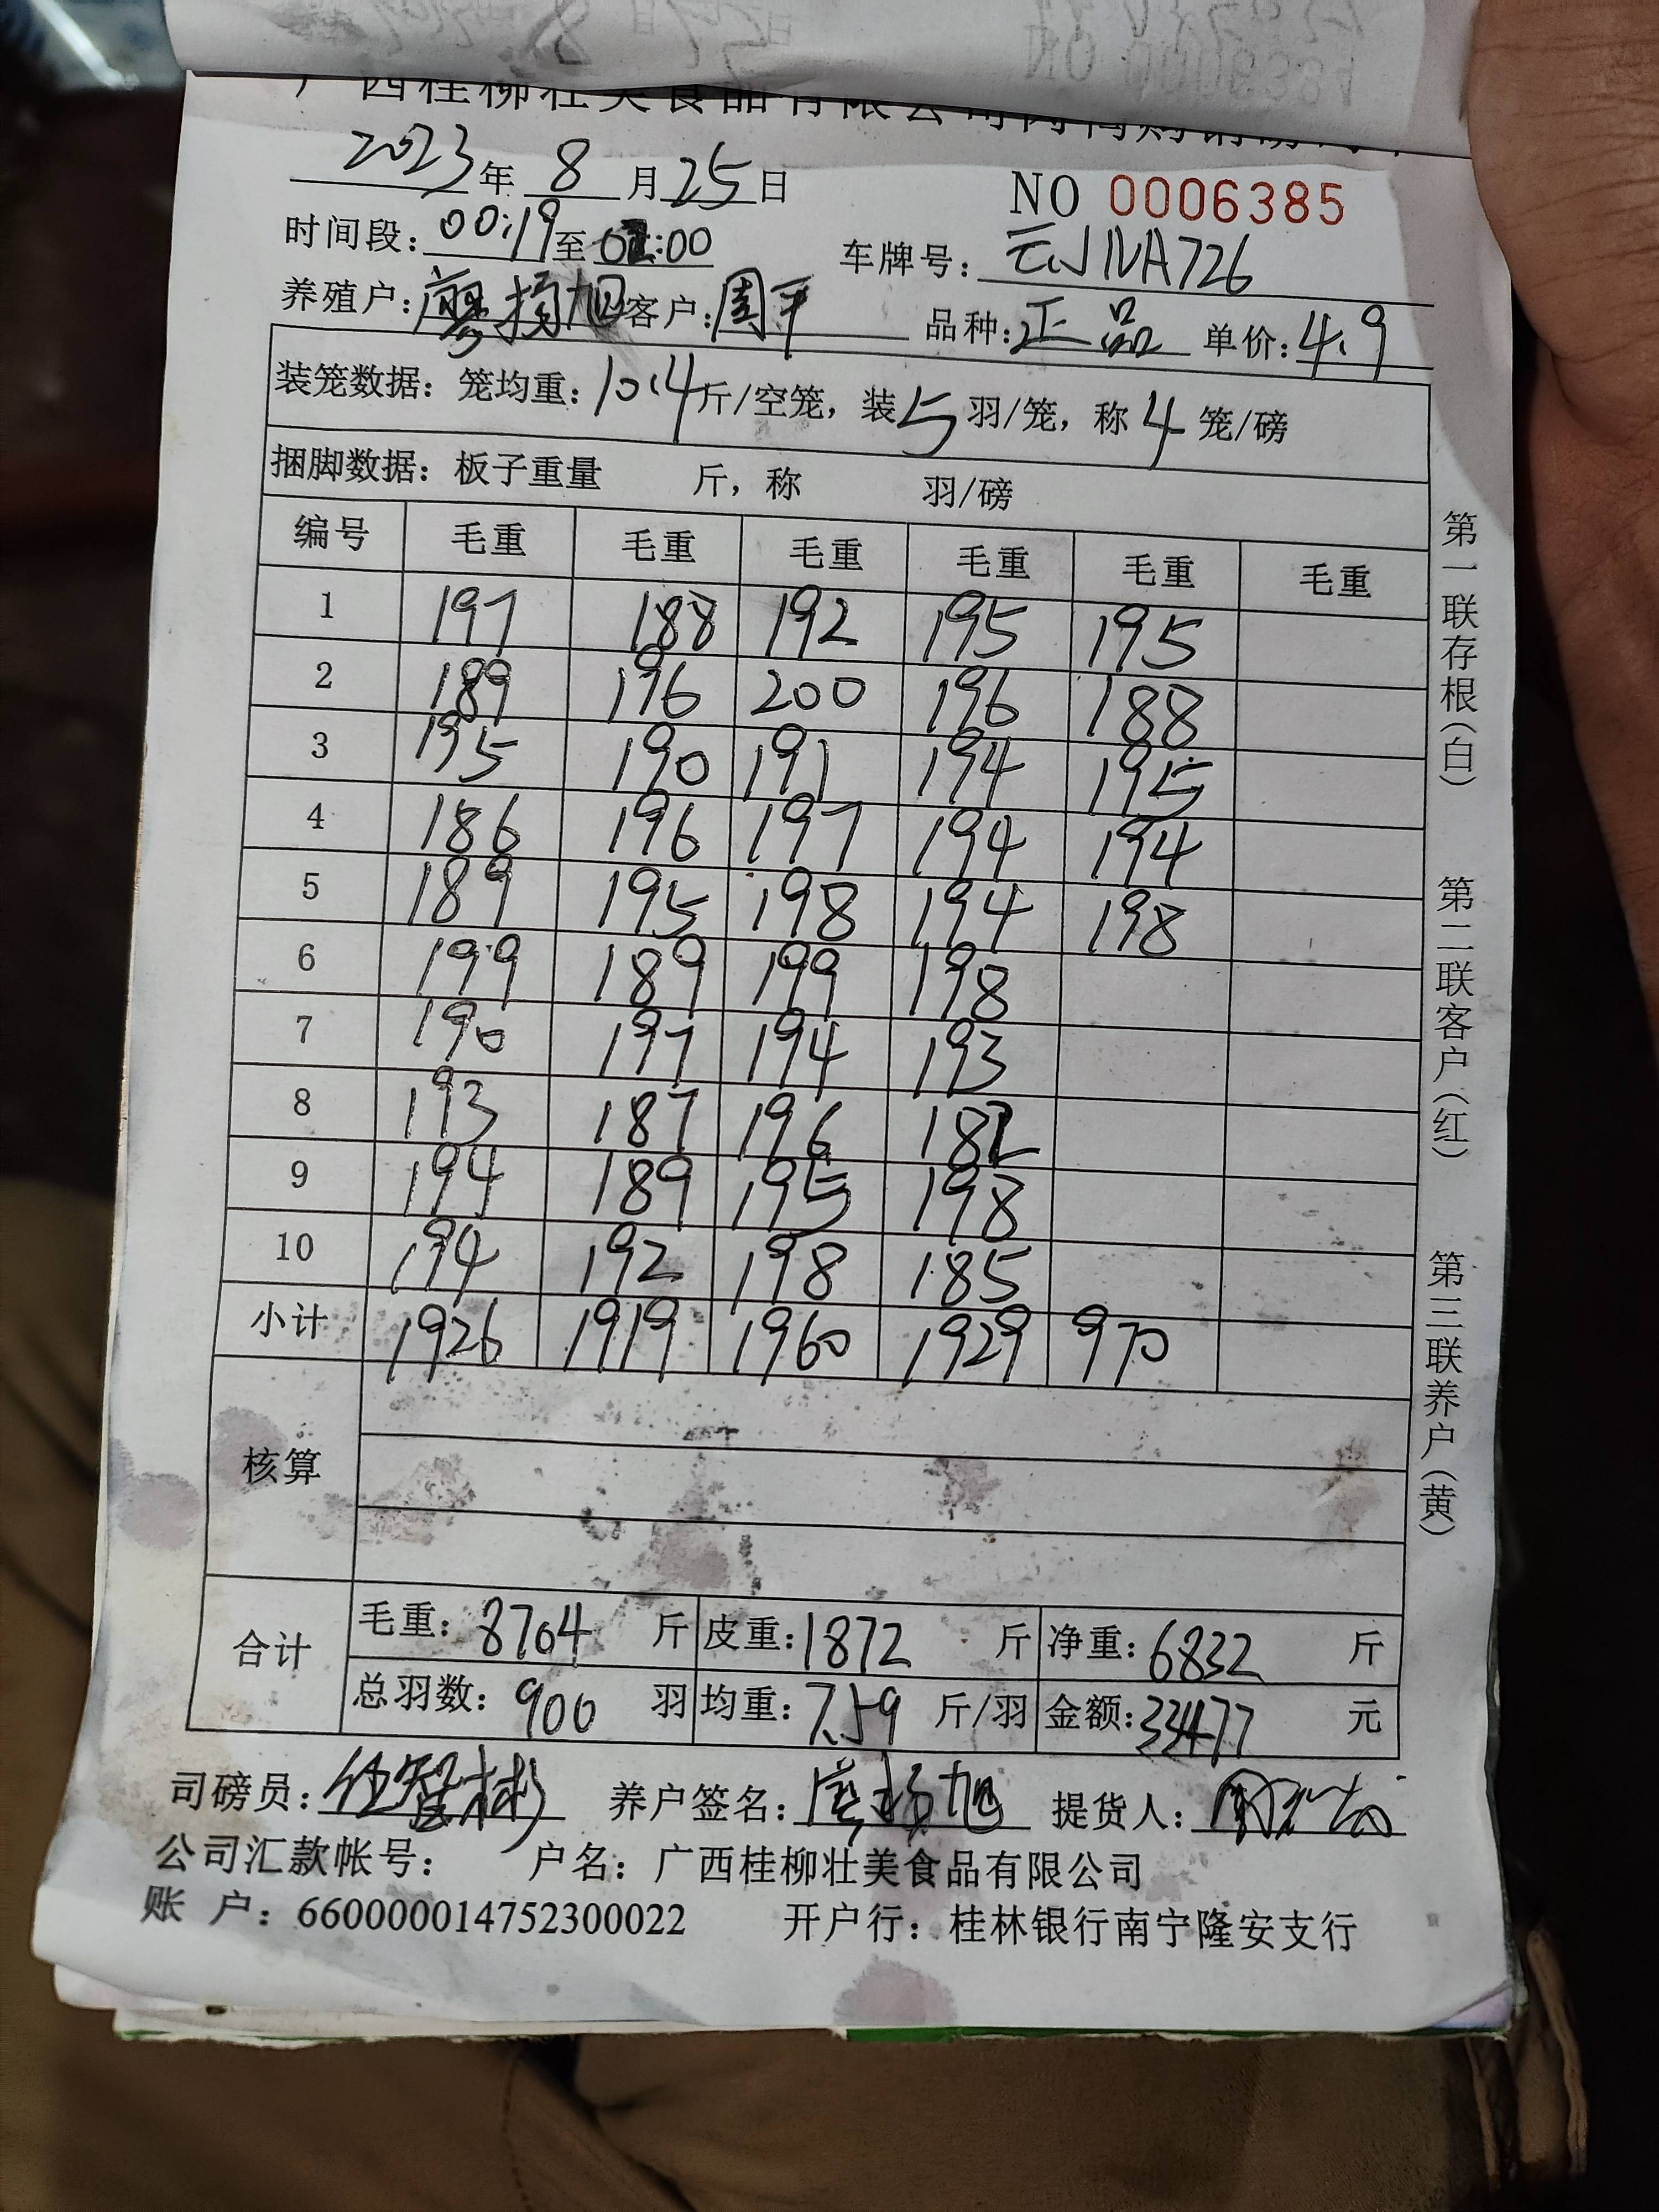 2023年8月25日
NO 0006385
时间段：00:19至02:00 车牌号：
养殖户：廖扬旭 客户：周平 品种：正品 单价：4.9
装笼数据：笼均重：10.4斤/空笼，装5羽/笼，称4笼/磅
捆脚数据：板子重量 斤，称 羽/磅
编号 毛重 毛重 毛重 毛重 毛重 毛重
1 197 188 192 195 195
2 189 196 200 196 188
3 195 190 191 194 195
4 186 196 197 194 194
5 189 195 198 194 198
6 199 189 199 198
7 190 197 194 193
8 193 187 196 182
9 194 189 195 198
10 194 192 198 185
小计 1926 1919 1960 1929 970
核算
合计
毛重：8704 斤 皮重：1872 斤 净重：6832 斤
总羽数：900 羽 均重：7.59 斤/羽 金额：33477 元
司磅员：任智彬 养户签名：廖扬旭 提货人：
公司汇款帐号： 户名：广西桂柳壮美食品有限公司
账 户：660000014752300022 开户行：桂林银行南宁隆安支行
第一联存根（白） 第二联客户（红） 第三联养户（黄）